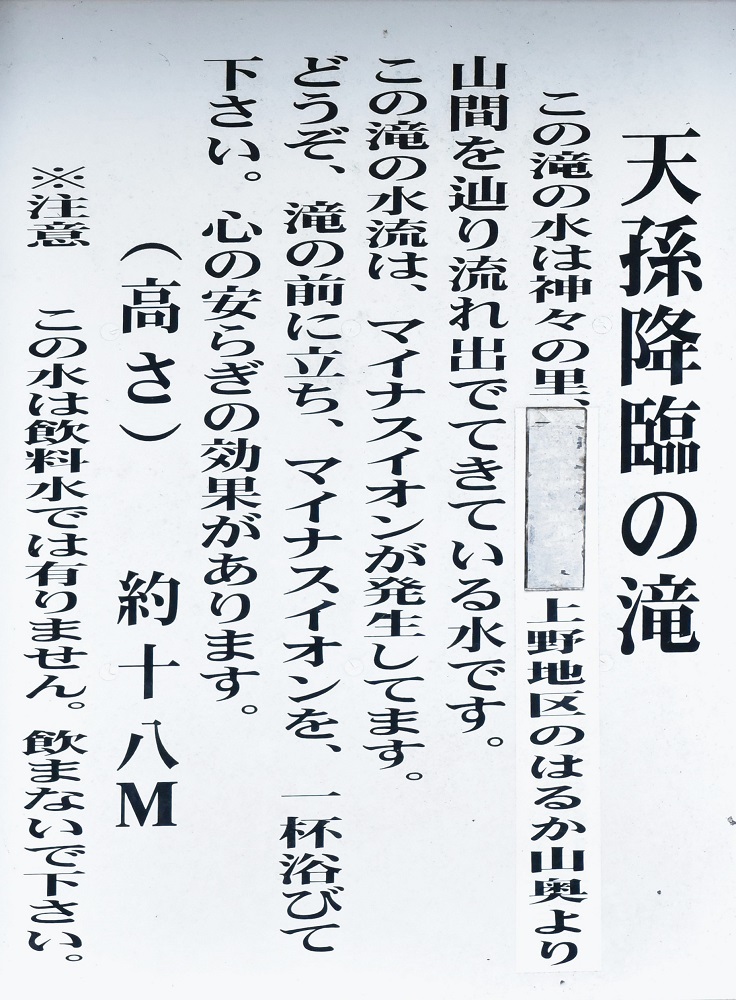 天孫降臨の滝
この滝の水は神々の里、上野地区のはるか山奥より
山間を辿り流れ出でてきている水です。
この滝の水流は、マイナスイオンが発生してます。
どうぞ、滝の前に立ち、マイナスイオンを、一杯浴びて
下さい。心の安らぎの効果があります。
（高さ）　約十八M
※注意　この水は飲料水では有りません。飲まないで下さい。